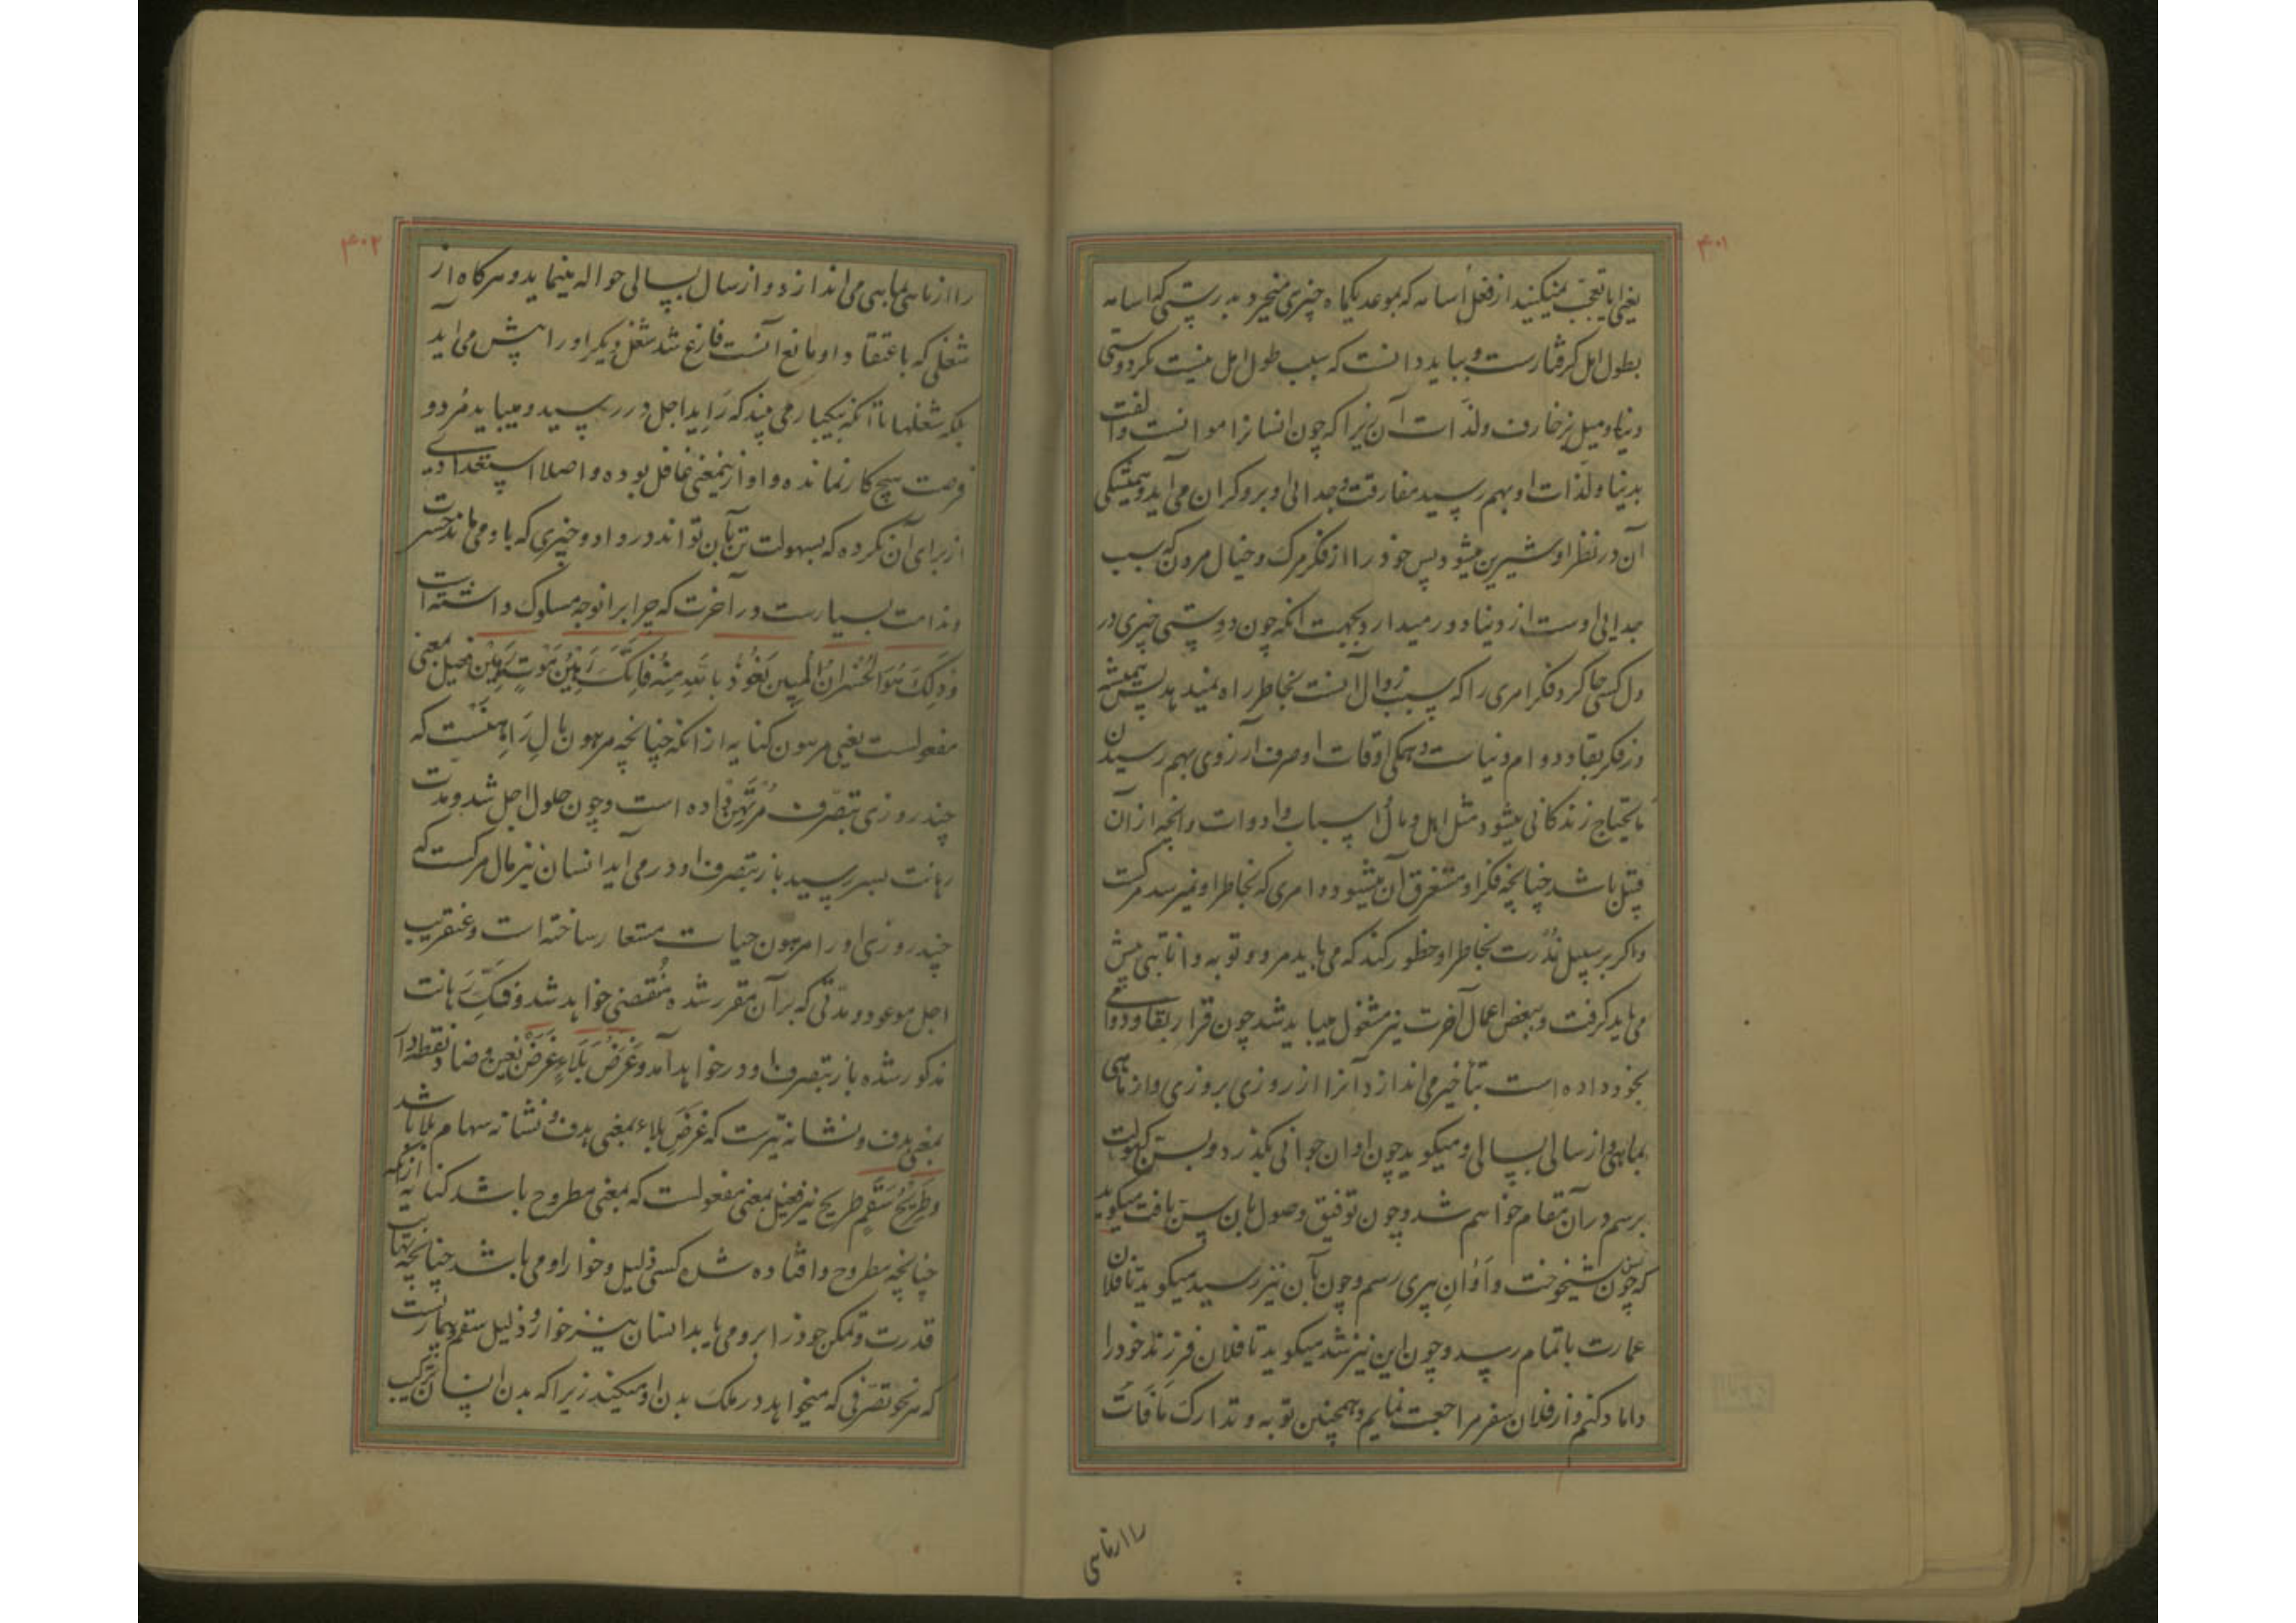 ۴۰۱
یعنی ایا تعجّب نمیکنید از فعل اُسامه که بموعد یکماه چیزی میخرد بدرستی که اسامه
بطول امل گرفتارست و بباید دانست که سبب طول امل نیست مگر دوستی
دنیا و میل بزخارف و لذّات آن زیرا که چون انسانرا موانست و الفت
بدنیا و لذّات او بهم رسید مفارقت و جدایی او برو گران می آید و همیشگی
آن در نظر او شیرین میشود پس خود را از فکر مرک و خیال مردن که سبب
جدایی اوست از دنیا دور میدارد بجهت انکه چون دوستی چیزی در
دل کسی جا کرد فکر امری را که سبب زوال آنست بخاطر راه نمیدهد پس همیشه
در فکر بقا و دوام دنیاست و همکی اوقات او صرف آرزوی بهم رسیدن
مایحتاج زندکانی میشود مثل اهل و مال و اسباب و ادوات و انچه از آن
قبیل باشد چنانچه فکر او مستغرق آن میشود و امری که بخاطر او نمیرسد مرکست
و اکر بر سبیل نُدرت بخاطر او خطور کند که می باید مرد و توبه و انابتی پیش
می باید کرفت و ببعض اعمال آخرت نیز مشغول میباید شد چون قرار بقا و دوامی
بخود داده است بتأخیر می اندازد آنرا از روزی بروزی و از ماهی
بماهی و از سالی بسالی و میکوید چون اوان جوانی بکذرد و بسن کهولت
برسم در آن مقام خواهم شد و چون توفیق وصول بان سن یافت میکوید
که چون بسن شیخوخت و اَوَانِ پیری رسم و چون بآن نیز رسید میکوید تا فلان
عمارت باتمام رسد و چون این نیز شد میکوید تا فلان فرزند خود را
داماد کنم و از فلان سفر مراجعت نمایم و همچنین توبه و تدارک مَا فَاتَ
را از ماهی
۴۰۲
را از ماهی بماهی می اندازد و از سال بسالی حواله مینماید و هرکاه از
شغلی که باعتقاد او مانع آنست فارغ شد شغل دیکر او را پیش می آید
بلکه شغلها تا آنکه بیکبار می بیند که رَایدِ اجل در رسید و میباید مُرد و
فرصت هیچ کار نمانده و او ازینمعنی غافل بوده و اصلا استعدادی
از برای آن نکرده که بسهولت تن بآن تواند در داد و چیزی که با و می ماند حسرت
و ندامت بسیارست در آخرت که چرا برانوجه مسلوک داشته است
وَذَلِکَ هُوَ الخُسْرانُ المُبِین نَعُوذُ بِاللّهِ مِنْهُ فَاِنَّکَ رَهِیْنُ مَوْتٍ رَهِیْن فعیل بمعنی
مفعولست یعنی مرهون کنایه از انکه چنانچه مرهون مالِ رَاهِنَست که
چند روزی بتصرّف مُرْتَهِن داده است و چون حلول اجل شد و مدت
رهانت بسر رسید باز بتصرف او در می آید انسان نیز مال مرکست که
چند روزی او را مرهون حیات مستعار ساخته است و عنقریب
اجل موعود و مدّتی که بر آن مقرر شده مُنقضی خواهد شد و فَکّ رَهانت
مذکور شده باز بتصرف او در خواهد آمد وَغَرَضُ بَلَاءٍ غَرَض بغین و ضاد نقطه دار
بمعنی هدف و نشانه تیرست که غَرَضِ بلاء بمعنی هدف و نشانه سهام بلا باشد
وَطَرِیْحُ سَقَمٍ طریح نیز فعیل بمعنی مفعولست که بمعنی مطروح باشد کنایه از انکه
چنانچه مطروح و افتاده شده کسی ذلیل و خوار او می باشد چنانچه
قدرت و تمکن خود را برو می یابد انسان نیز خوار و ذلیل سقم و بیماریست
که هر نحو تصرّفی که میخواهد در ملک بدن او میکند زیرا که بدن انسان ترکیب